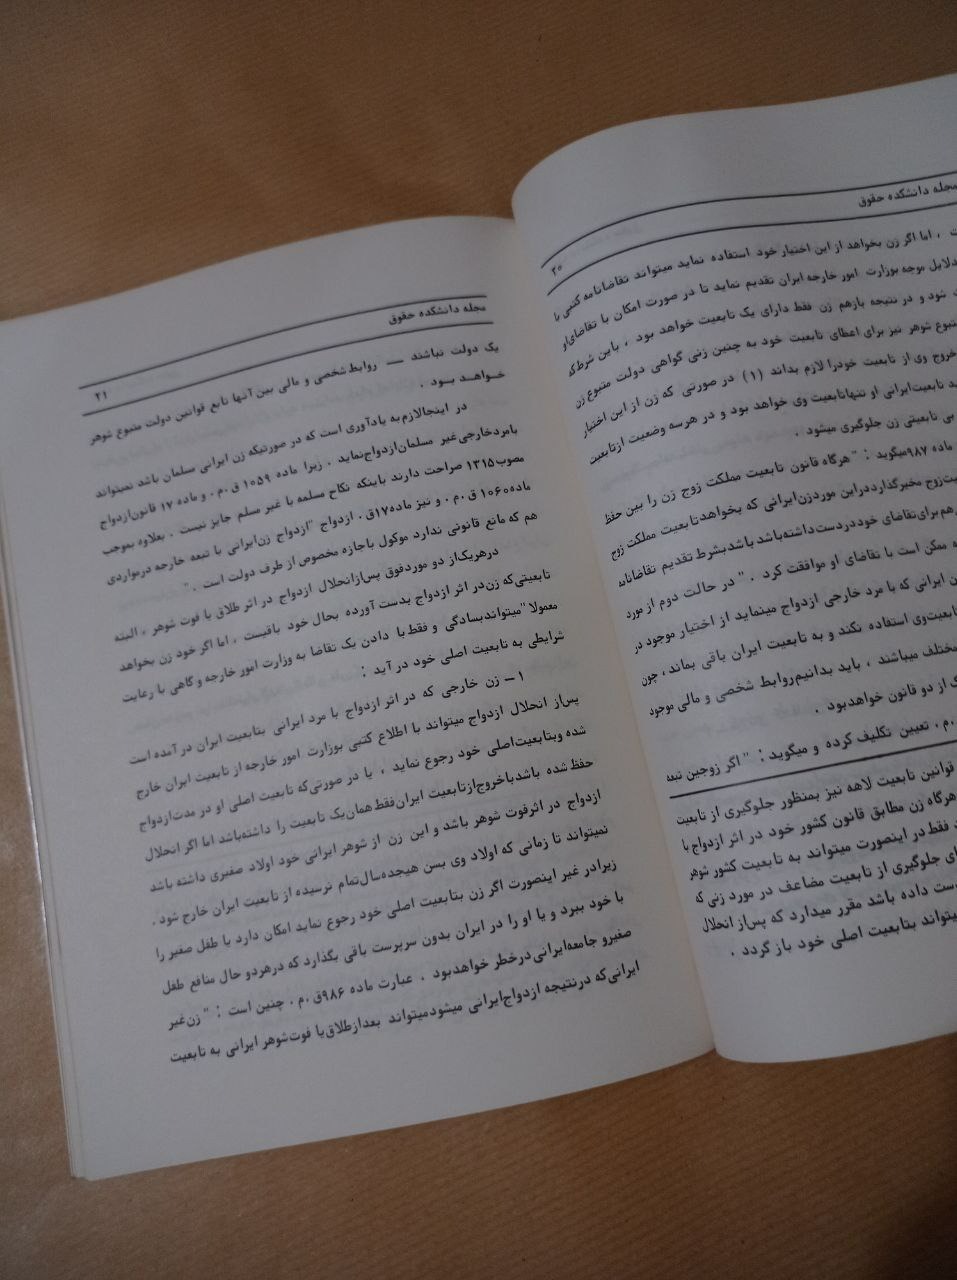 مجله دانشکده حقوق
۲۰
، اما اگر زن بخواهد از این اختیار خود استفاده نماید میتواند تقاضانامه کتبی با
دلایل موجه بوزارت امور خارجه ایران تقدیم نماید تا در صورت امکان با تقاضای او
شود و در نتیجه بازهم زن فقط دارای یک تابعیت خواهد بود ، باین شرط که
متبوع شوهر نیز برای اعطای تابعیت خود به چنین زنی گواهی دولت متبوع زن
خروج وی از تابعیت خودرا لازم بداند (۱) در صورتی که زن از این اختیار
تابعیت ایرانی او تنهاتابعیت وی خواهد بود و در هرسه وضعیت ازتابعیت
بی تابعیتی زن جلوگیری میشود .
ماده ۹۸۷میگوید : " هرگاه قانون تابعیت مملکت زوج زن را بین حفظ
تابعیت زوج مخیرگذارددراین موردزن‌ایرانی که بخواهدتابعیت مملکت زوج
هم‌برای‌تقاضای خوددردست داشته‌باشد باشدبشرط تقدیم تقاضانامه
ممکن است با تقاضای او موافقت کرد . " در حالت دوم از مورد
ایرانی که با مرد خارجی ازدواج مینماید از اختیار موجود در
تابعیت‌وی استفاده نکند و به تابعیت ایران باقی بماند ، چون
مختلف میباشند ، باید بدانیم‌روابط شخصی و مالی موجود
از دو قانون خواهدبود .
.م. تعیین تکلیف کرده و میگوید : " اگر زوجین تبعه
قوانین تابعیت لاهه نیز بمنظور جلوگیری از تابعیت
هرگاه زن مطابق قانون کشور خود در اثر ازدواج با
فقط در اینصورت میتواند به تابعیت کشور شوهر
جلوگیری از تابعیت مضاعف در مورد زنی که
دست داده باشد مقرر میدارد که پس‌از انحلال
میتواند بتابعیت اصلی خود باز گردد .
مجله دانشکده حقوق
۲۱
یک دولت نباشند — روابط شخصی و مالی بین آنها تابع قوانین دولت متبوع شوهر
خواهد بود .
در اینجالازم‌به یادآوری است که در صورتیکه زن ایرانی مسلمان باشد نمیتواند
بامردخارجی‌غیر مسلمان‌ازدواج‌نماید . زیرا ماده ۱۰۵۹ ق.م. و ماده ۱۷ قانون‌ازدواج
مصوب۱۳۱۵ صراحت دارند باینکه نکاح مسلمه با غیر مسلم جایز نیست . بعلاوه بموجب
ماده۱۰۶۰ ق.م. و نیز ماده۱۷ق. ازدواج "ازدواج زن‌ایرانی با تبعه خارجه درمواردی
هم که مانع قانونی ندارد موکول باجازه مخصوص از طرف دولت است . "
درهریک‌از دو موردفوق پس‌ازانحلال ازدواج در اثر طلاق یا فوت شوهر ، البته
تابعیتی‌که زن‌در اثر ازدواج بدست آورده بحال خود باقیست ، اما اگر خود زن بخواهد
معمولا" میتواندبسادگی و فقط با دادن یک تقاضا به وزارت امور خارجه و گاهی با رعایت
شرایطی به تابعیت اصلی خود در آید :
۱ــ زن خارجی که در اثر ازدواج با مرد ایرانی بتابعیت ایران در آمده است
پس‌از انحلال ازدواج میتواند با اطلاع کتبی بوزارت امور خارجه از تابعیت ایران خارج
شده وبتابعیت‌اصلی خود رجوع نماید ، یا در صورتی‌که تابعیت اصلی او در مدت‌ازدواج
حفظ شده باشد باخروج‌ازتابعیت ایران‌فقط همان‌یک تابعیت را داشته‌باشد اما اگر انحلال
ازدواج در اثرفوت شوهر باشد و این زن از شوهر ایرانی خود اولاد صغیری داشته باشد
نمیتواند تا زمانی که اولاد وی بسن هیجده‌سال‌تمام نرسیده از تابعیت ایران خارج شود .
زیرادر غیر اینصورت اگر زن بتابعیت اصلی خود رجوع نماید امکان دارد یا طفل صغیر را
با خود ببرد و یا او را در ایران بدون سرپرست باقی بگذارد که درهردو حال منافع طفل
صغیرو جامعه‌ایرانی‌درخطر خواهدبود . عبارت ماده ۹۸۶ق.م. چنین است : " زن‌غیر
ایرانی‌که درنتیجه ازدواج‌ایرانی میشودمیتواند بعدازطلاق‌یا فوت‌شوهر ایرانی به تابعیت